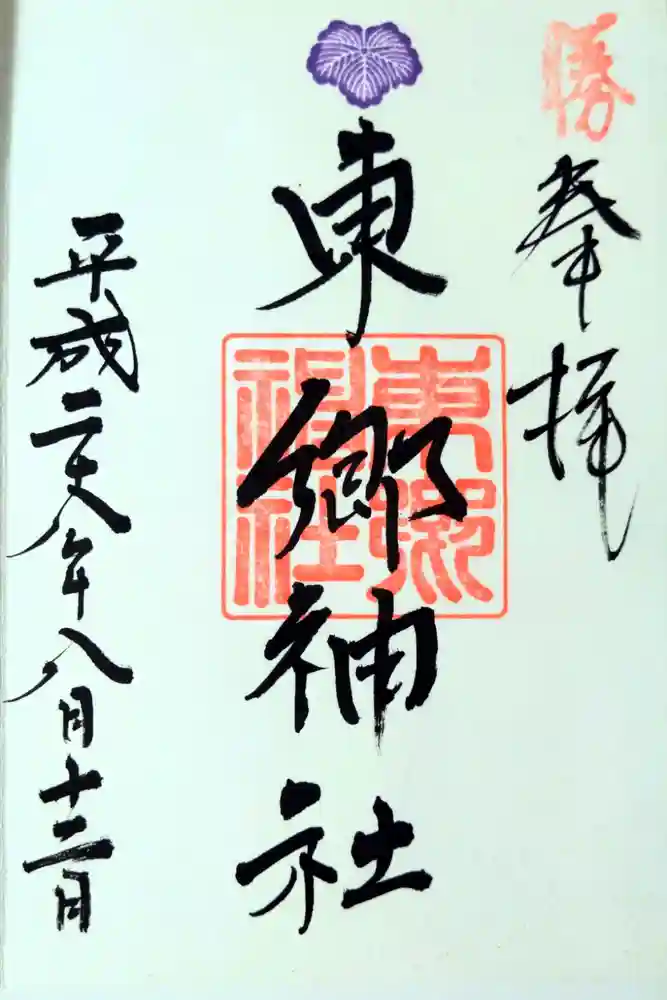 勝
奉拝
東郷神社
東郷神社
平成二十八年八月十二日